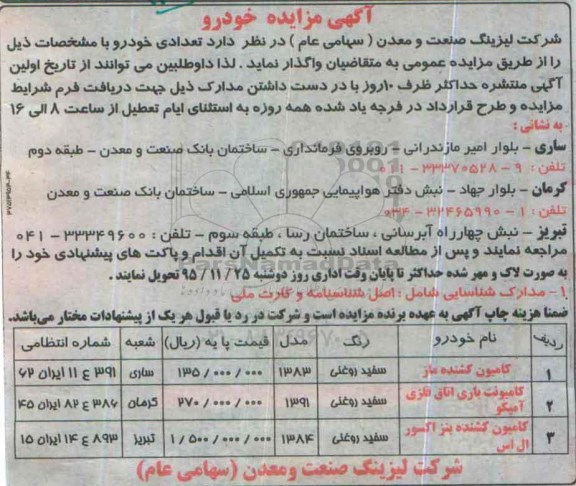 آگهی مزایده خودرو
شرکت لیزینگ صنعت و معدن ( سهامی عام ) در نظر دارد تعدادی خودرو با مشخصات ذیل
را از طریق مزایده عمومی به متقاضیان واگذار نماید . لذا داوطلبین می توانند از تاریخ اولین
آگهی منتشره حداکثر ظرف ۱۰روز با در دست داشتن مدارک ذیل جهت دریافت فرم شرایط
مزایده و طرح قرارداد در فرجه یاد شده همه روزه به استثنای ایام تعطیل از ساعت ۸ الی ۱۶
به نشانی :
ساری - بلوار امیر مازندرانی - روبروی فرمانداری - ساختمان بانک صنعت و معدن - طبقه دوم
تلفن : ۹ - ۳۳۳۷۰۵۲۸ - ۰۱۱
کرمان - بلوار جهاد - نبش دفتر هواپیمایی جمهوری اسلامی - ساختمان بانک صنعت و معدن
تلفن : ۱ - ۳۲۴۶۵۹۹۰ - ۰۳۴
تبریز - نبش چهارراه آبرسانی ، ساختمان رسا ، طبقه سوم - تلفن : ۳۳۳۴۹۶۰۰ - ۰۴۱
مراجعه نمایند و پس از مطالعه اسناد نسبت به تکمیل آن اقدام و پاکت های پیشنهادی خود را
به صورت لاک و مهر شده حداکثر تا پایان وقت اداری روز دوشنبه ۲۵ / ۱۱ / ۹۵ تحویل نمایند .
۱ - مدارک شناسایی شامل : اصل شناسنامه و کارت ملی
ضمنا هزینه چاپ آگهی به عهده برنده مزایده است و شرکت در رد یا قبول هر یک از پیشنهادات مختار می‌باشد.
ردیف نام خودرو رنگ مدل قیمت پایه (ریال) شعبه شماره انتظامی
۱ کامیون کشنده ماز سفید روغنی ۱۳۸۳ ۱۳۵/۰۰۰/۰۰۰ ساری ۳۹۱ ع ۱۱ ایران ۶۲
۲ کامیونت باری اتاق فلزی آمیکو سفید روغنی ۱۳۹۱ ۲۷۰/۰۰۰/۰۰۰ کرمان ۳۸۶ ع ۸۲ ایران ۴۵
۳ کامیون کشنده بنز اکسور ال اس سفید روغنی ۱۳۸۴ ۱/۵۰۰/۰۰۰/۰۰۰ تبریز ۸۹۳ ع ۱۴ ایران ۱۵
شرکت لیزینگ صنعت ومعدن (سهامی عام)